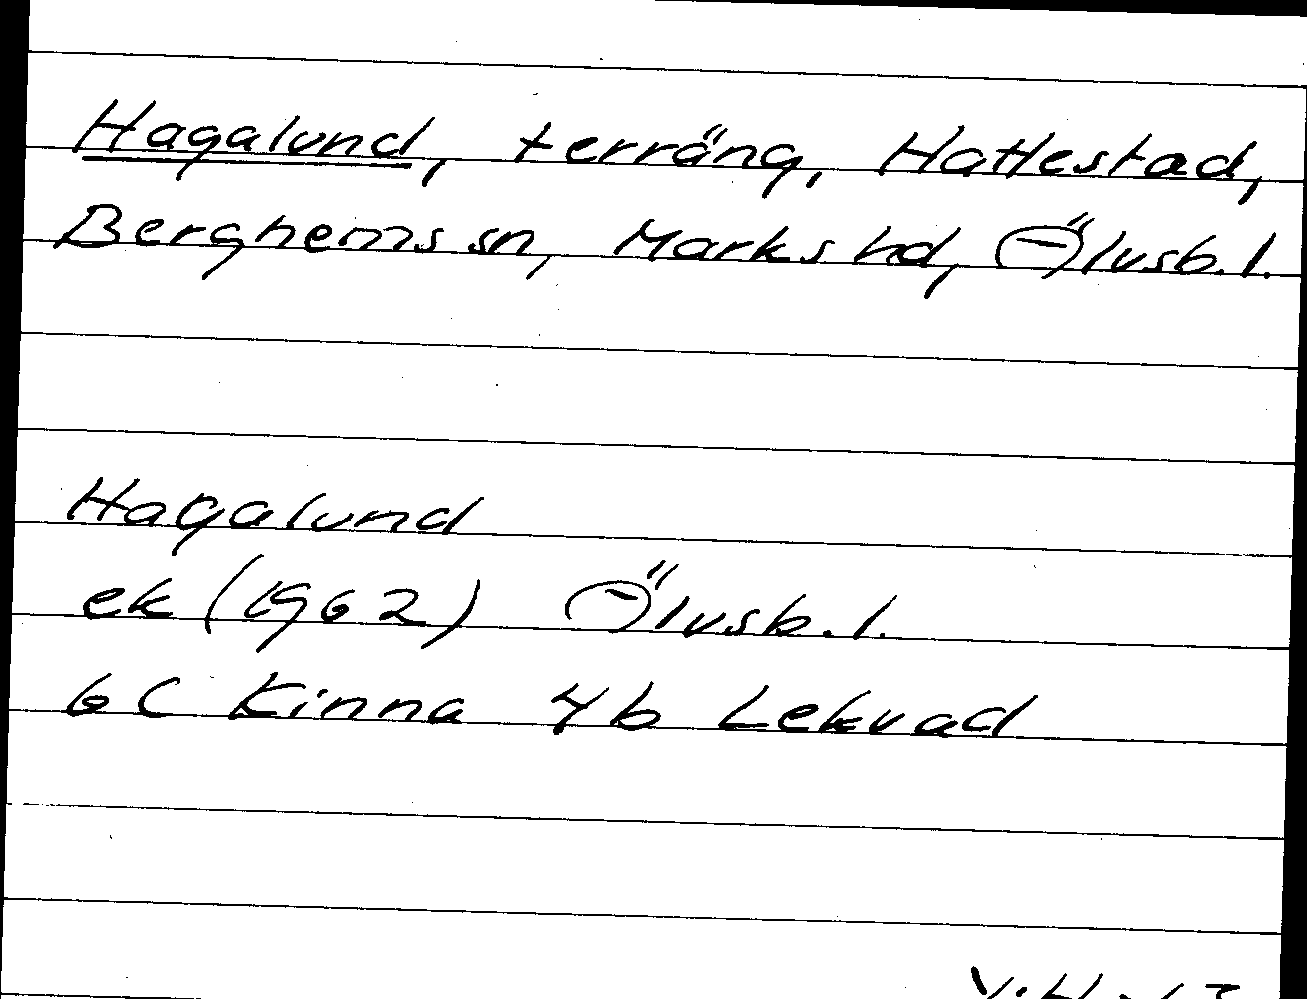 Hagalund, terräng, Hattestad,
Berghems sn, Marks hd, Älvsb.l.
Hagalund
ek (1962) Älvsb.l.
6C Kinna 4b Lekvad